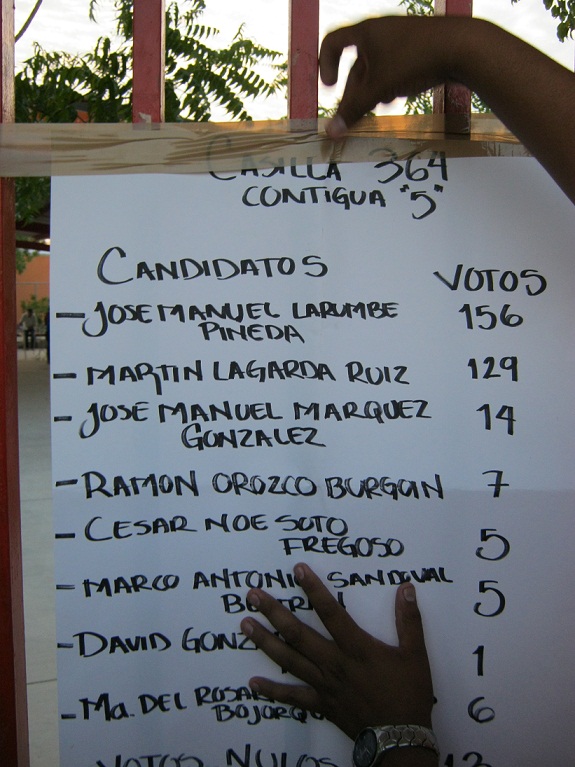 CASILLA 364
CONTIGUA "5"
CANDIDATOS VOTOS
- JOSE MANUEL LARUMBE 156
PINEDA
- MARTIN LAGARDA RUIZ 129
- JOSE MANUEL MARQUEZ 14
GONZALEZ
- RAMON OROZCO BURGOIN 7
- CESAR NOE SOTO 5
FREGOSO
- MARCO ANTONIO SANDOVAL 5
- DAVID 1
- Ma. DEL 6
VOTOS NULOS 13